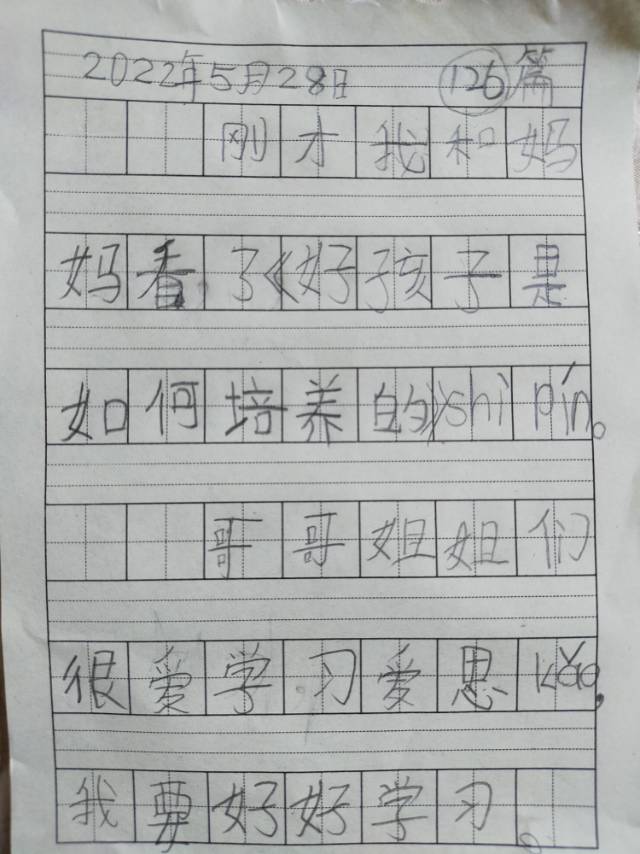 2022年5月28日 126篇
刚才我和妈
妈看了《好孩子是
如何培养的》shì pín。
哥哥姐姐们
很爱学习爱思kǎo,
我要好好学习。